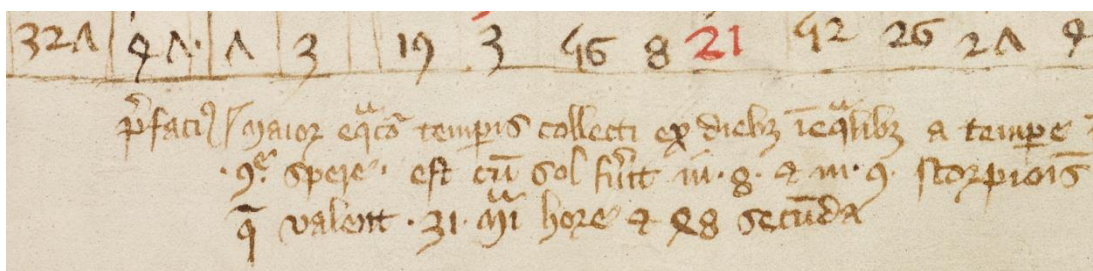 327 47· 7 3 19 3 56 8 21 52 26 27 4
p̄faciꝰ maior eqᵃcō temꝑis collecti ex diebꝫ īeqᵃlibꝫ a temꝑe
·9ͤ· spere· est cū sol fūit in·8· ⁊ in·9· scorpiōis
q̄ valent ·31· mi hore ⁊ 48 secūda